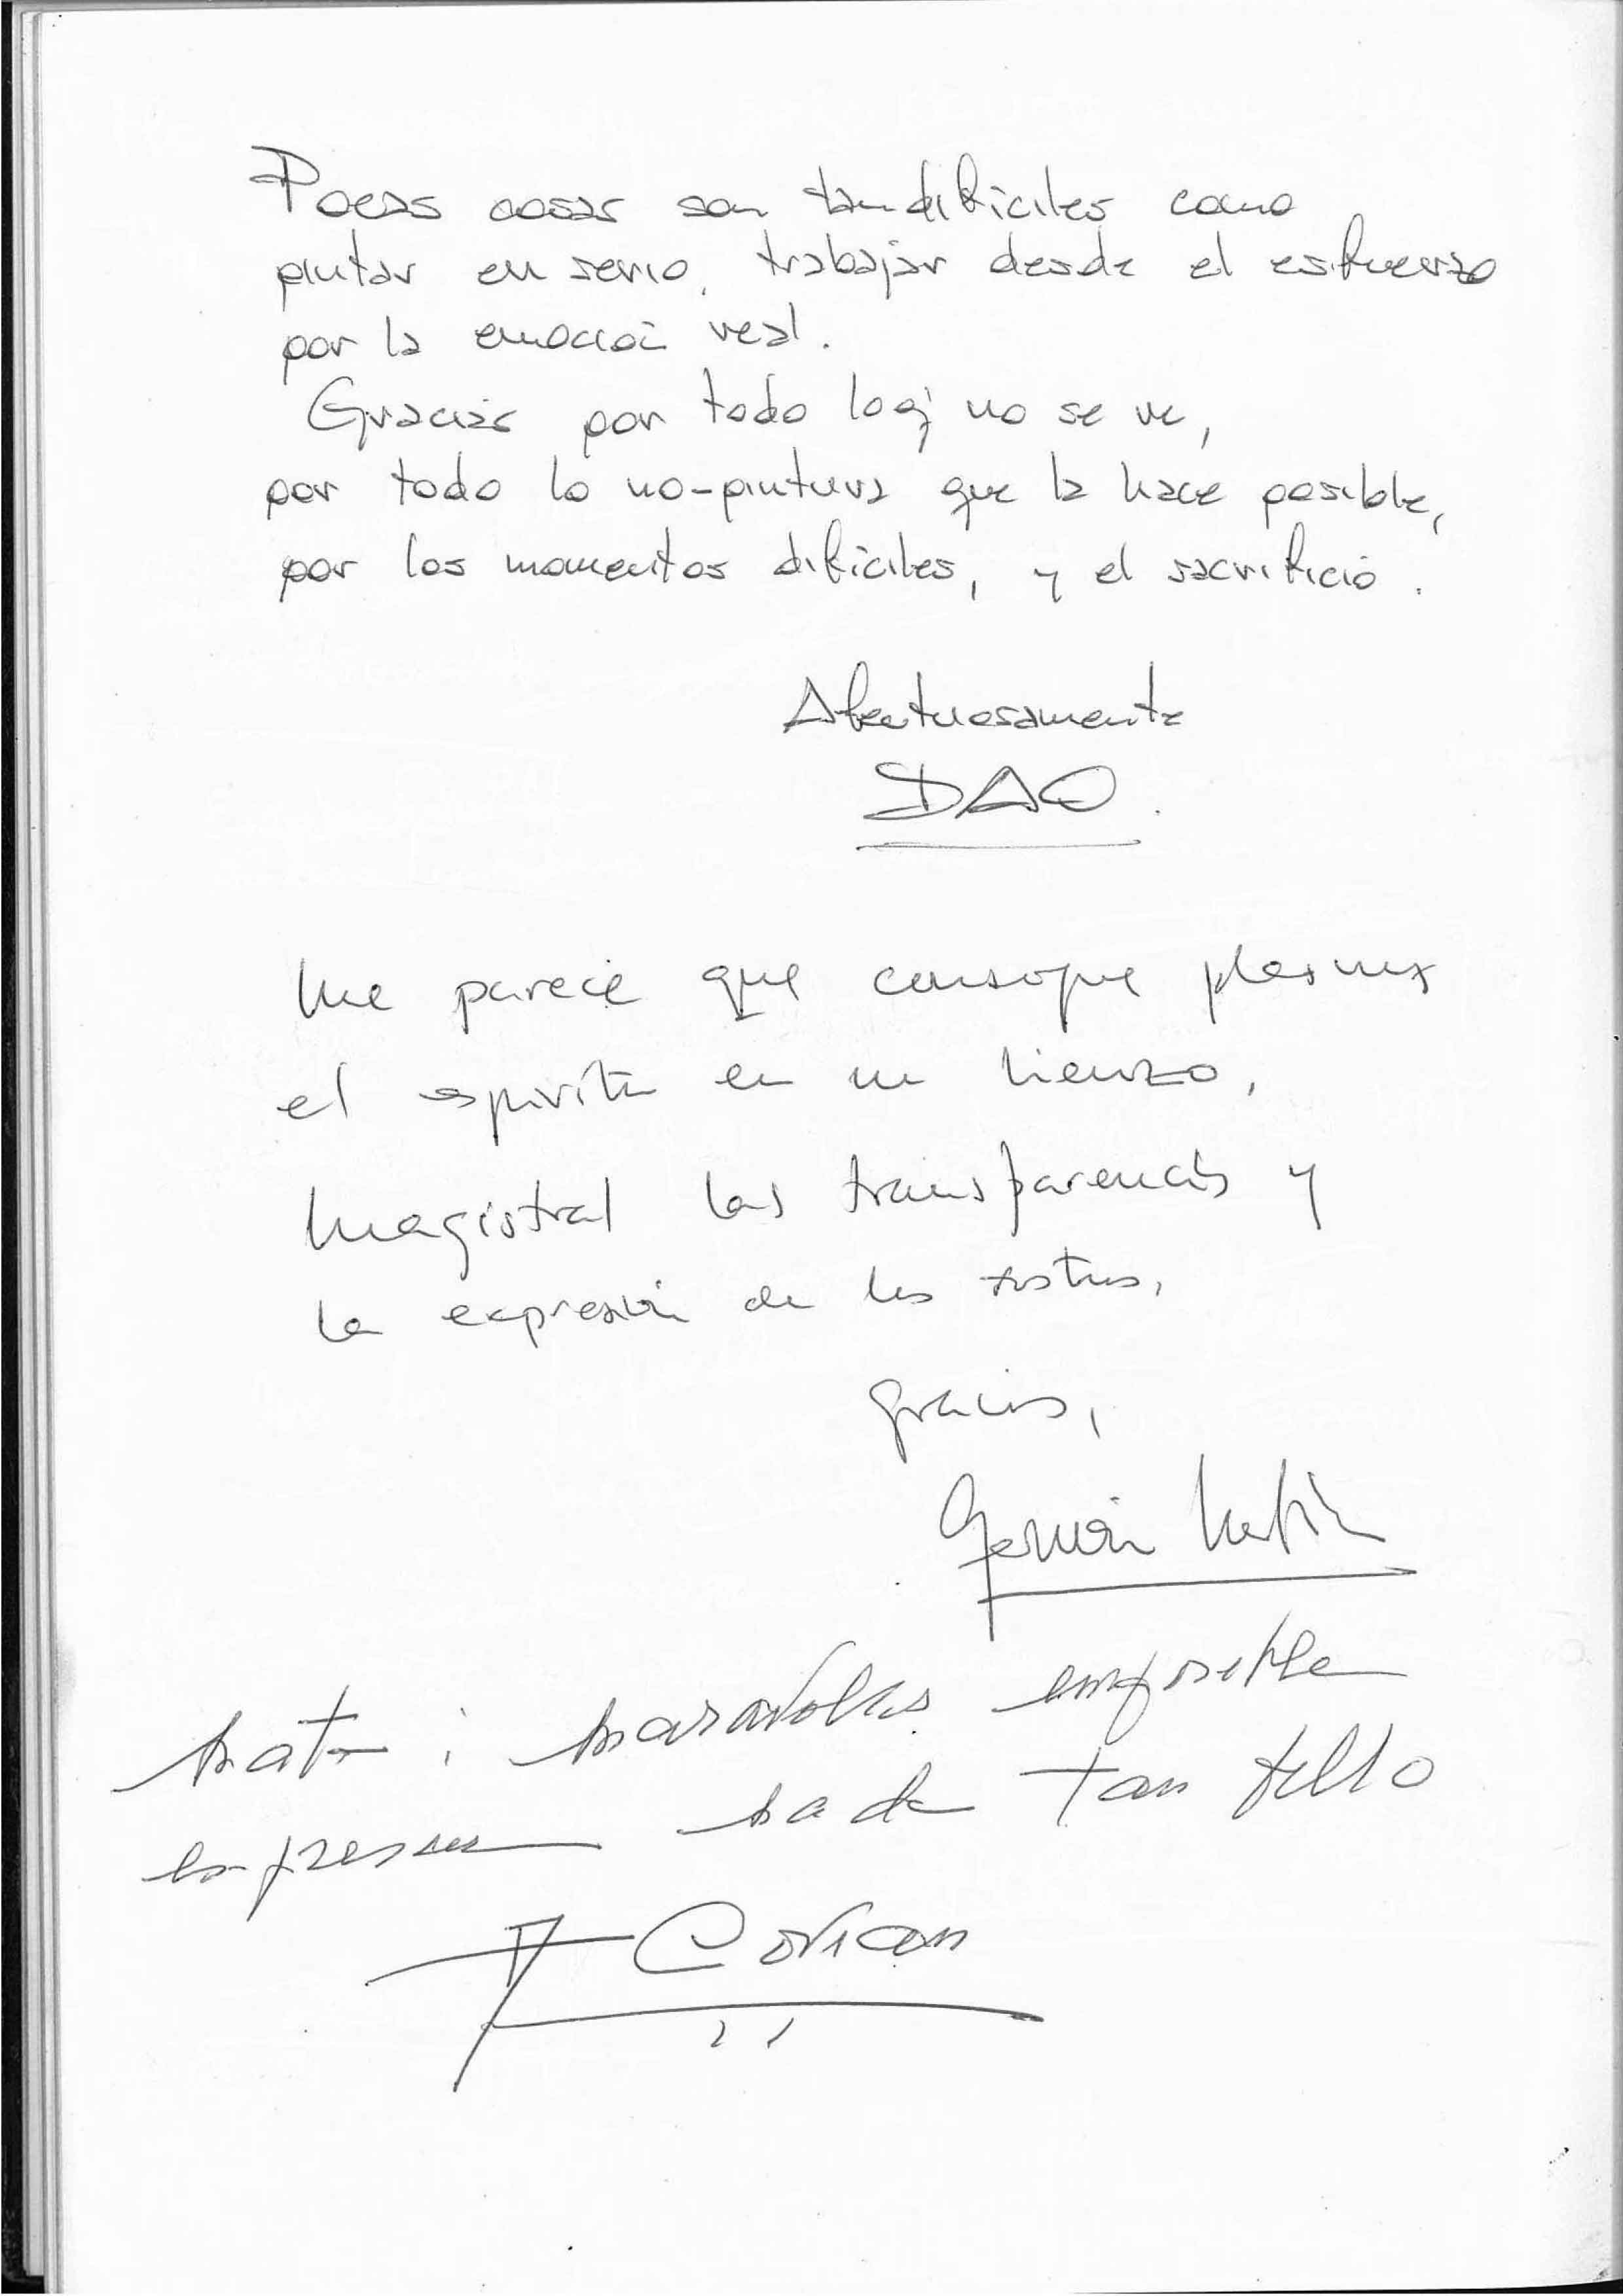 Pocas cosas son tan difíciles como
pintar en serio, trabajar desde el esfuerzo
por la emoción real.
Gracias por todo lo q' no se ve,
por todo lo no-pintura que la hace posible,
por los momentos difíciles, y el sacrificio.
Afectuosamente
DAO.
Me parece que consigue plasmar
el espíritu en un lienzo,
magistral las transparencias y
la expresión de los rostros,
gracias,
Germán
tan bello
Corian